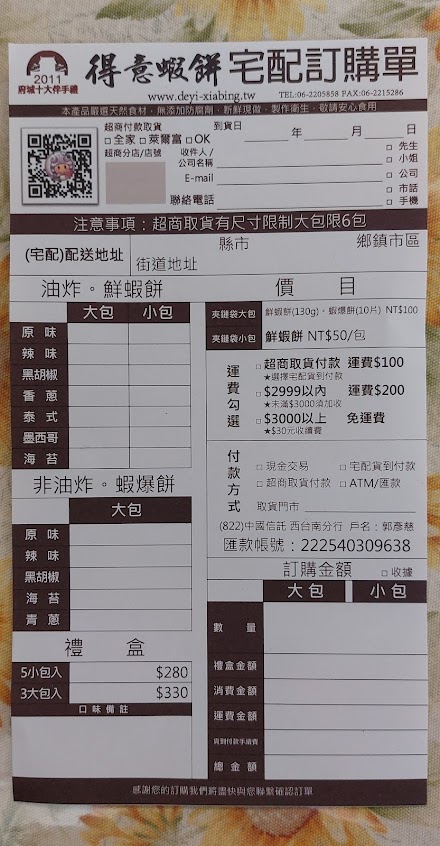 2011
府城十大伴手禮
得意蝦餅 宅配訂購單
www.deyi-xiabing.tw
TEL:06-2205858 FAX:06-2215286
本產品嚴選天然食材，無添加防腐劑，新鮮現做，製作衛生，敬請安心食用
超商付款取貨
□全家 □萊爾富 □OK
超商分店/店號
到貨日 年 月 日
收件人/
公司名稱
□先生
□小姐
E-mail
□公司
□市話
聯絡電話
□手機
注意事項：超商取貨有尺寸限制大包限6包
(宅配)配送地址
縣市 鄉鎮市區
街道地址
油炸。鮮蝦餅
大包 小包
原味
辣味
黑胡椒
香蔥
泰式
墨西哥
海苔
非油炸。蝦爆餅
大包
原味
辣味
黑胡椒
海苔
青蔥
禮盒
5小包入 $280
3大包入 $330
口味備註
價目
夾鏈袋大包 鮮蝦餅(130g)。蝦爆餅(10片) NT$100
夾鏈袋小包 鮮蝦餅 NT$50/包
運費勾選
□超商取貨付款 運費$100
★選擇宅配貨到付款
□$2999以內 運費$200
★未滿$3000須加收
□$3000以上 免運費
★$30元收續費
付款方式
□現金交易 □宅配貨到付款
□超商取貨付款 □ATM/匯款
取貨門市
(822)中國信託 西台南分行 戶名：郭彥慈
匯款帳號：222540309638
訂購金額 □收據
大包 小包
數量
禮盒金額
消費金額
運費金額
貨到付款手續費
總金額
感謝您的訂購我們將盡快與您聯繫確認訂單